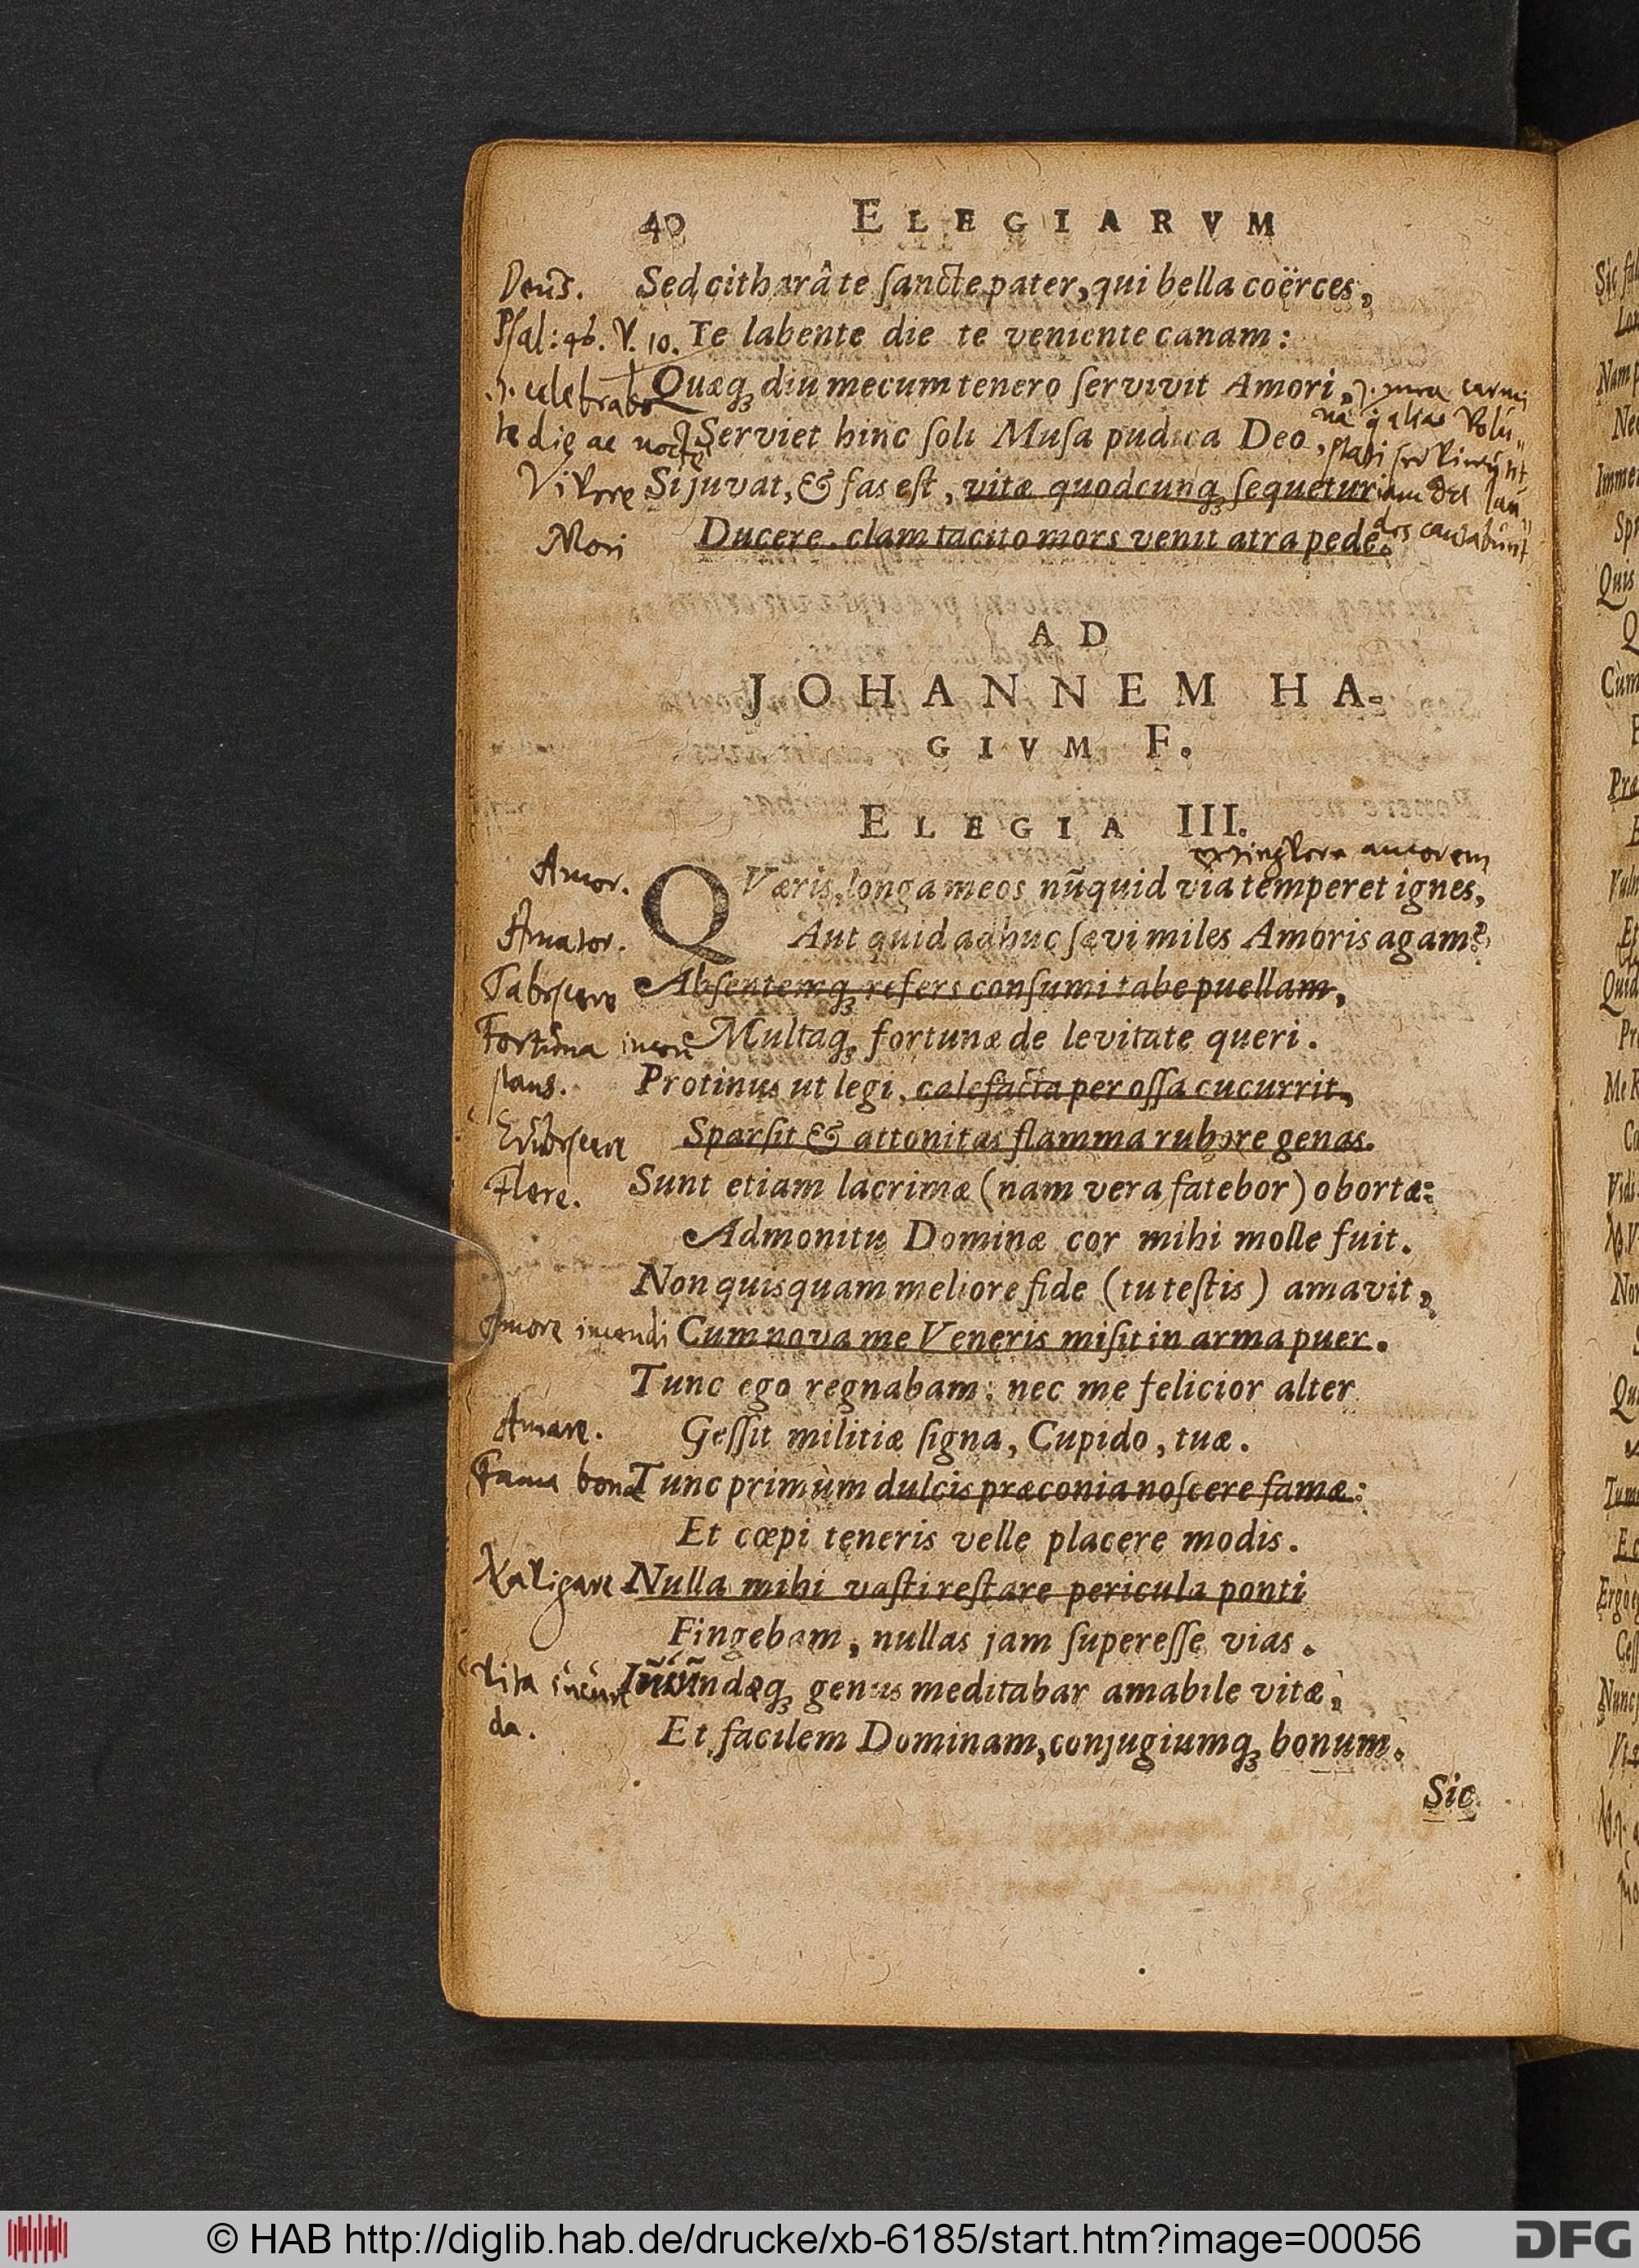 40 ELEGIARVM
Deus. Sed citharâ te ſancte pater, qui bella coërces,
Pſal: 46. V. 10. Te labente die te veniente canam:
.i. celebrabo Quæq́ꝫ diu mecum tenero ſervivit Amori, .i. mea carmi
te die ac nocte Serviet hinc ſoli Muſa pudica Deo,
Vivere Si juvat, & fas eſt, vitæ quodcunqꝫ ſequetur
Mori Ducere. clam tacito mors venit atra pede.
AD
JOHANNEM HA-
GIVM F.
ELEGIA III.
extinguere amorem
Amor. QVæris, longa meos nũquid via temperet ignes,
Amator. Aut quid adhuc ſævi miles Amoris agam?
Tabescere Abſentemqꝫ refers conſumi tabe puellam,
Fortuna incon Multaqꝫ fortunæ de levitate queri.
stans. Protinus ut legi, calefacta per oſſa cucurrit,
Erubescere Sparſit & attonitas flamma rubore genas.
Flere. Sunt etiam lacrimæ (nam vera fatebor) obortæ:
Admonitu Dominæ cor mihi molle fuit.
Non quisquam meliore fide (tu teſtis) amavit,
Amore incendi Cum nova me Veneris miſit in arma puer.
Tunc ego regnabam: nec me felicior alter
Amare. Geſſit militiæ ſigna, Cupido, tuæ.
Fama bona Tunc primùm dulcis præconia noſcere famæ:
Et cœpi teneris velle placere modis.
Navigare Nulla mihi vaſti reſtare pericula ponti
Fingebam, nullas jam ſupereſſe vias.
Vita iucun Jucundæqꝫ genus meditabar amabile vitæ,
da. Et facilem Dominam, conjugiumqꝫ bonum.
Sic
© HAB http://diglib.hab.de/drucke/xb-6185/start.htm?image=00056 DFG